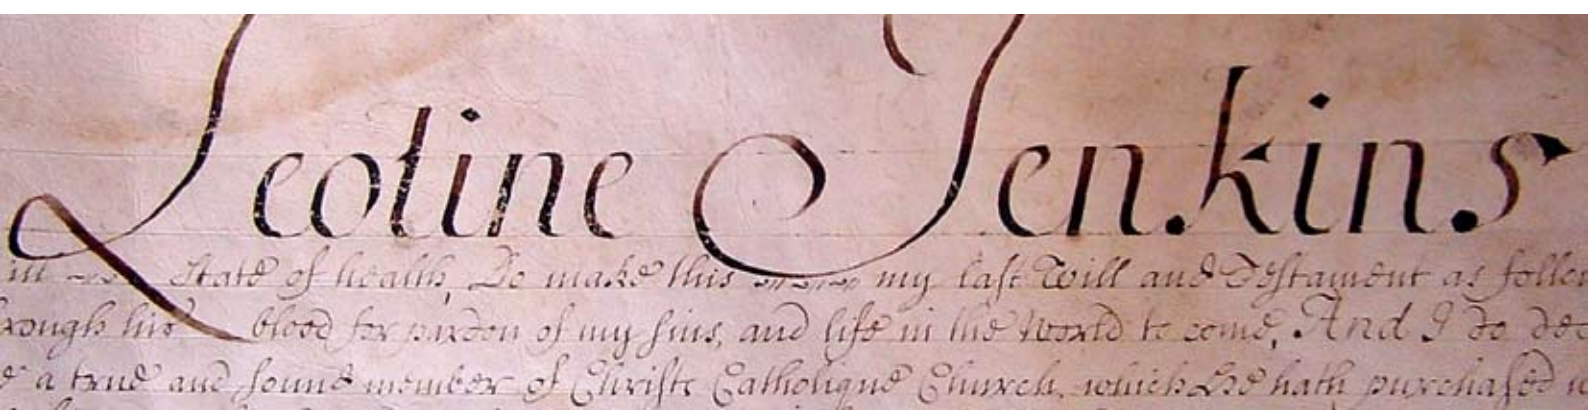 Leoline Jenkins
in State of health, Do make this my last Will and Testament as follow
rough his blood for pardon of my sins, and life in the World to come, And I do dec
e a true and sound member of Christs Catholique Church, which He hath purchased w